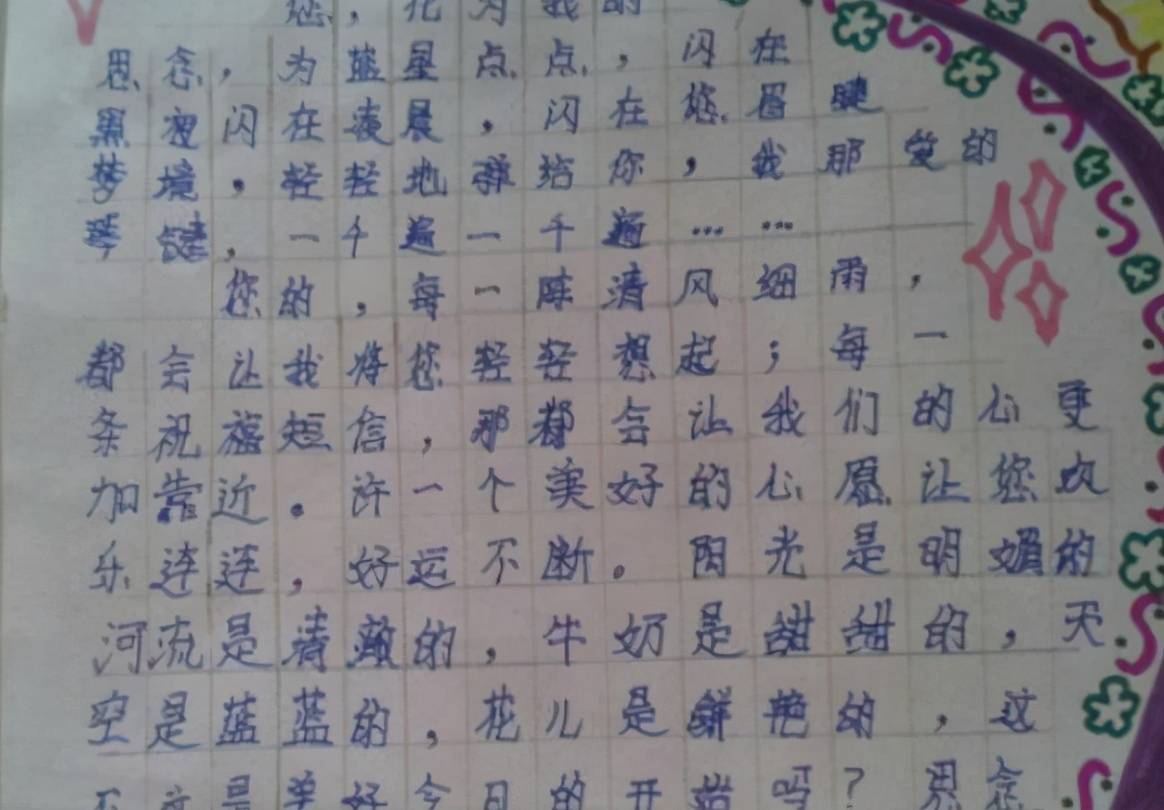 您，化为我的
思念，为蓝星点点，闪在
黑夜闪在凌晨，闪在您眉睫
梦境。轻轻地弹给你，我那爱的
琴键，一千遍一千遍……
您的，每一阵清风细雨，
都会让我将您轻轻想起；每一
条祝福短信，那都会让我们的心更
加靠近。许一个美好的心愿让您欢
乐连连，好运不断。阳光是明媚的
河流是清澈的，牛奶是甜甜的，天
空是蓝蓝的，花儿是鲜艳的，这
不就是美好今日的开始吗？思念